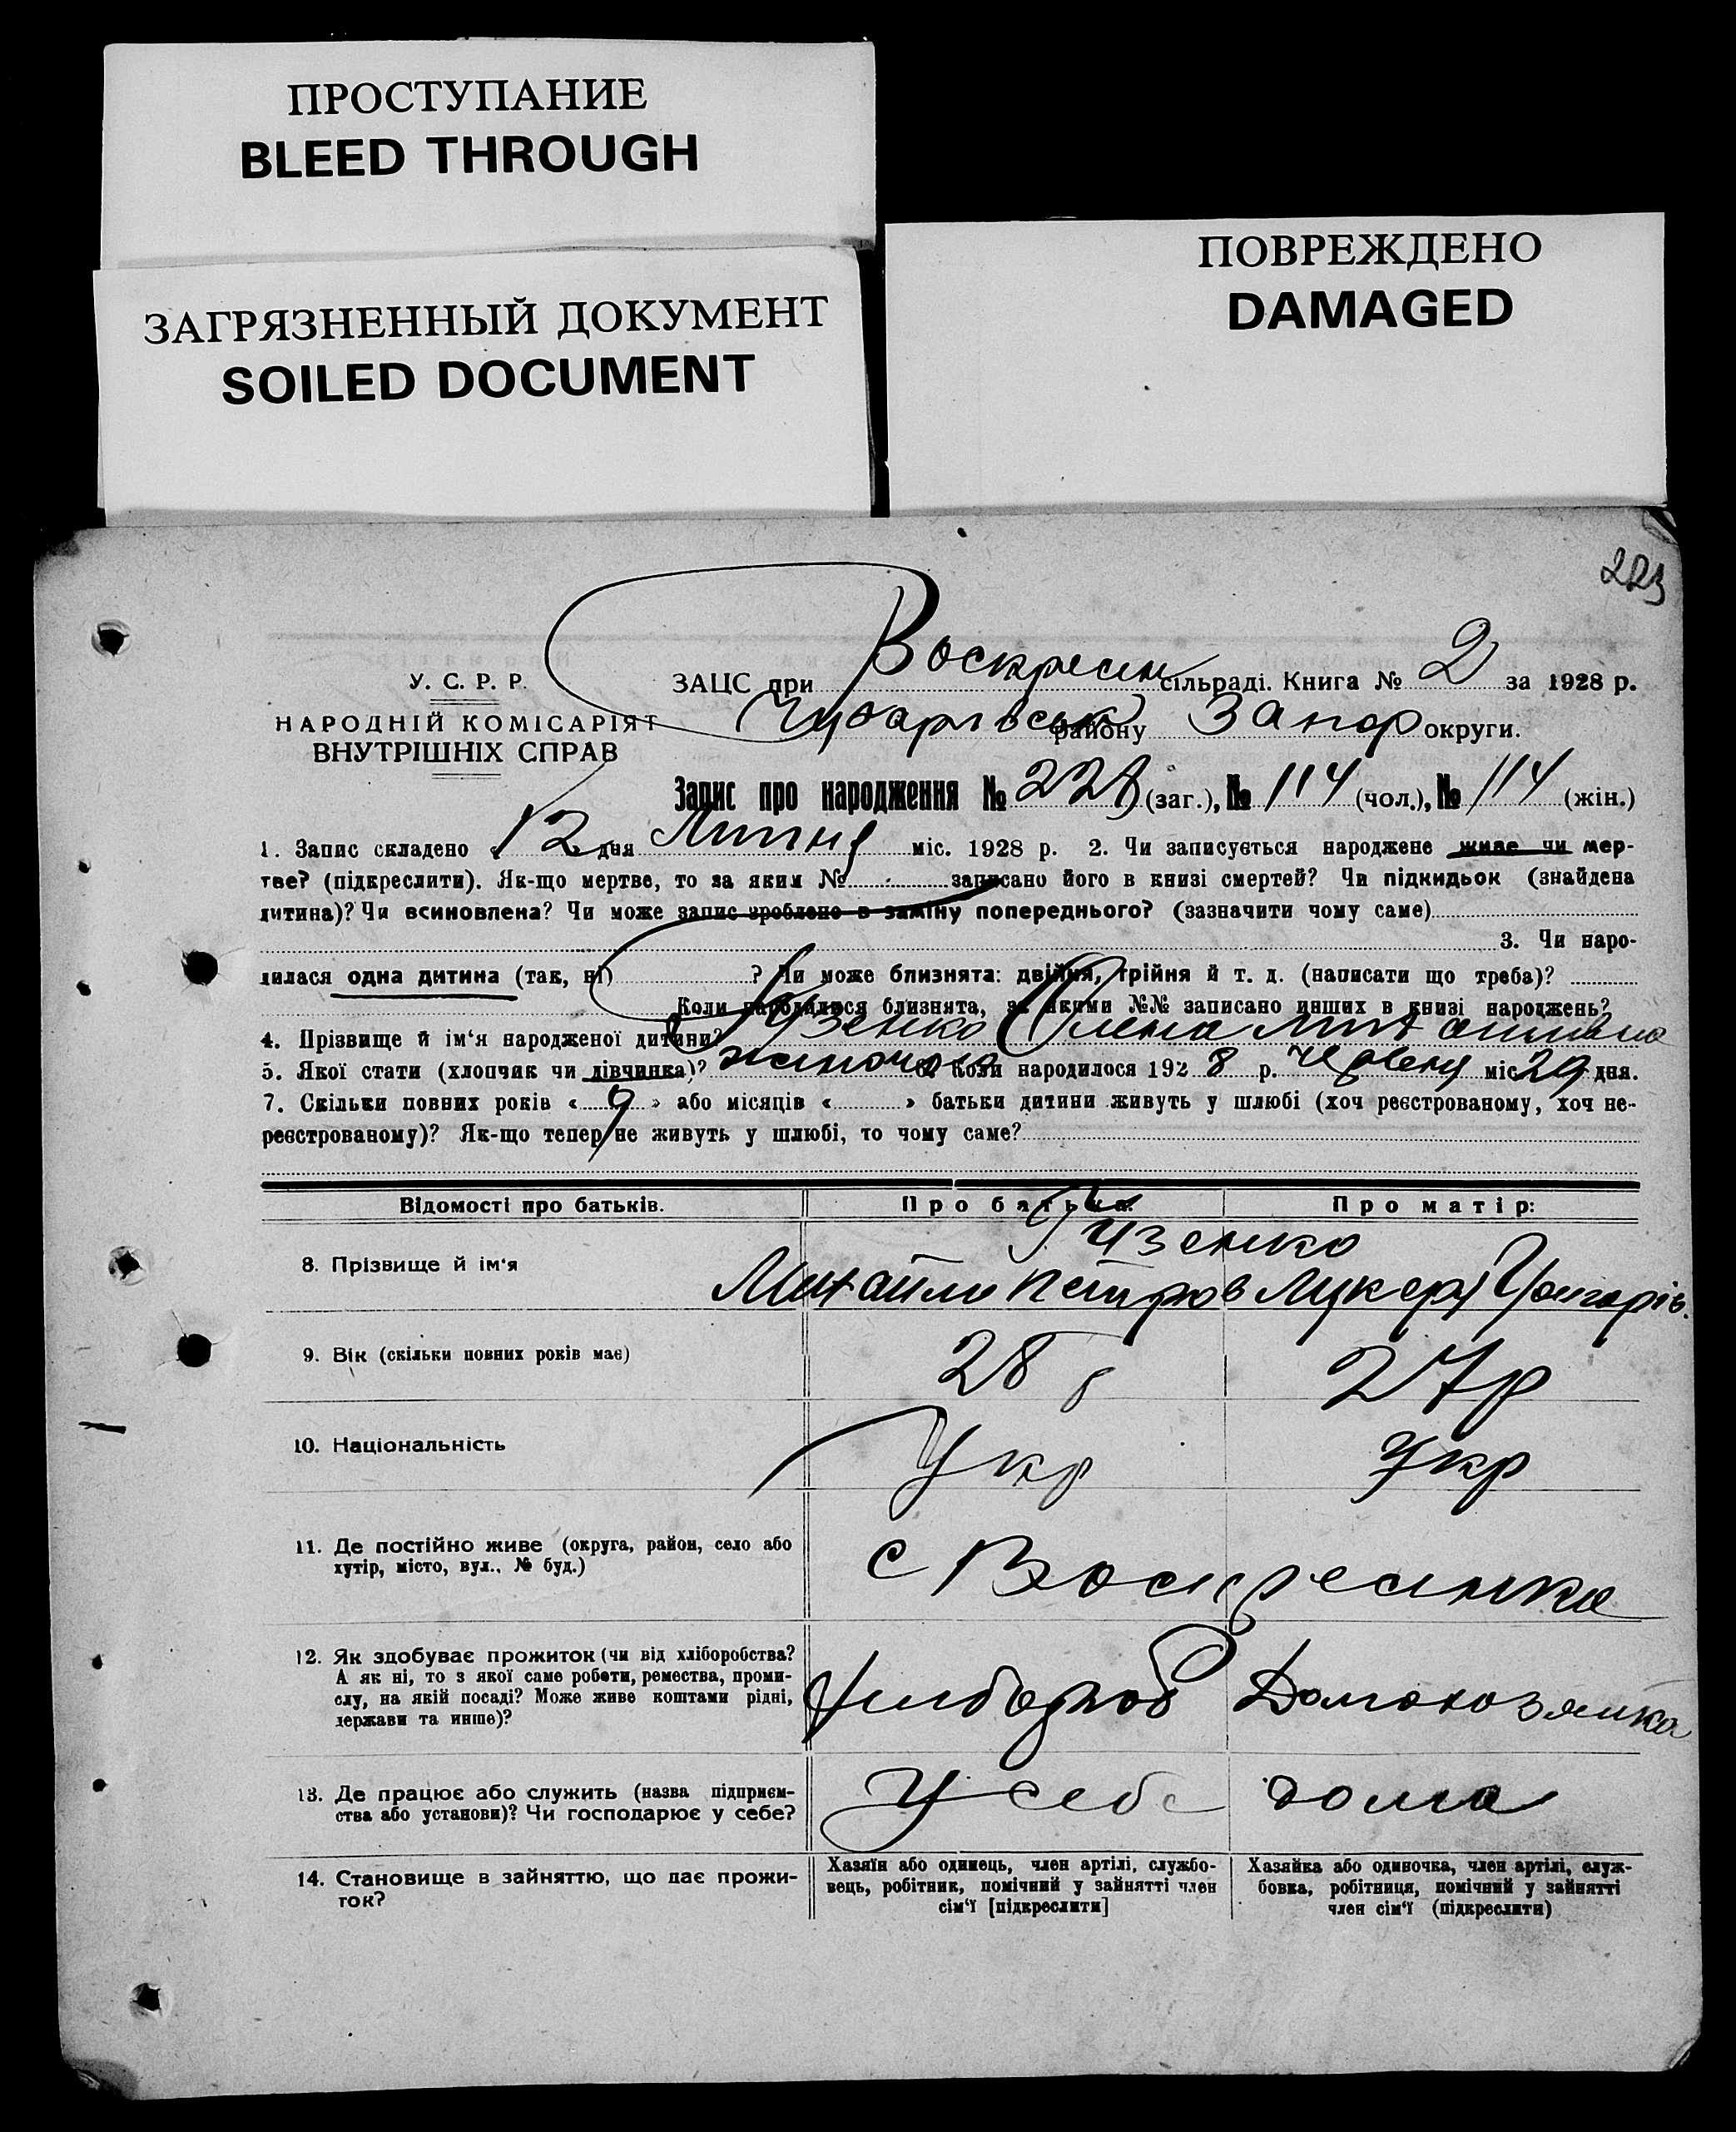 ПРОСТУПАНИЕ
BLEED THROUGH
ЗАГРЯЗНЕННЫЙ ДОКУМЕНТ
SOILED DOCUMENT
ПОВРЕЖДЕНО
DAMAGED
223
У. С. Р. Р.
НАРОДНІЙ КОМІСАРІЯТ
ВНУТРІШНІХ СПРАВ
ЗАЦС при Воскресен сільраді. Книга № 2 за 1928 р.
Чубарівськ району Запор округи.
Запис про народження № 228 (заг.), № 114 (чол.), № 114 (жін.)
1. Запис складено « 12 дня Липня міс. 1928 р. 2. Чи записується народжене живе чи мер-
тве? (підкреслити). Як-що мертве, то за яким № записано його в книзі смертей? Чи підкидьок (знайдена
дитина)? Чи всиновлена? Чи може запис зроблено в заміну попереднього? (зазначити чому саме)
3. Чи наро-
дилася одна дитина (так, ні) ? Чи може близнята: двійня, трійня й т. д. (написати що треба)?
Коли народилися близнята, за якими №№ записано инших в книзі народжень?
4. Прізвище й ім‘я народженої дитини? Гузенко Олена
5. Якої стати (хлопчик чи дівчинка)? жіноча 6. Коли народилося 1928 р. Червня міс 29 дня.
7. Скільки повних років « 9 » або місяців « » батьки дитини живуть у шлюбі (хоч реєстрованому, хоч не-
реєстрованому)? Як-що тепер не живуть у шлюбі, то чому саме?
Відомості про батьків. Про батька: Про матір:
8. Прізвище й ім‘я Гузенко
Михайло Петров Лукер Григорів.
9. Вік (скільки повних років має) 28 р 27 р
10. Національність Укр Укр
11. Де постійно живе (округа, район, село або
хутір, місто, вул.. № буд.) с Воскресенка
12. Як здобуває прожиток (чи від хліборобства?
А як ні, то з якої саме роботи, ремества, проми-
слу, на якій посаді? Може живе коштами рідні,
держави та инше)? Хлібороб Домохозяйка
13. Де працює або служить (назва підприєм-
ства або установи)? Чи господарює у себе? У себе дома
14. Становище в зайняттю, що дає прожи-
ток?
Хазяїн або одинець, член артілі, службо-
вець, робітник, помічний у зайнятті член
сім‘ї [підкреслити]
Хазяйка або одиночка, член артілі, служ-
бовка, робітниця, помічний у зайнятті
член сім‘ї (підкреслити)